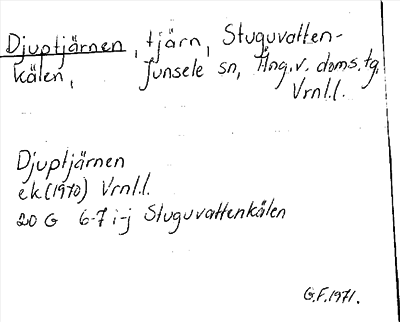 Djuptjärnen, tjärn, Stuguvatten-
kälen, Junsele sn, Ång.v. doms.tg.
Vrnl.l.
Djuptjärnen
ek (1970) Vrnl.l.
20 G 6-7 i-j Stuguvattenkälen
G.F. 1971.